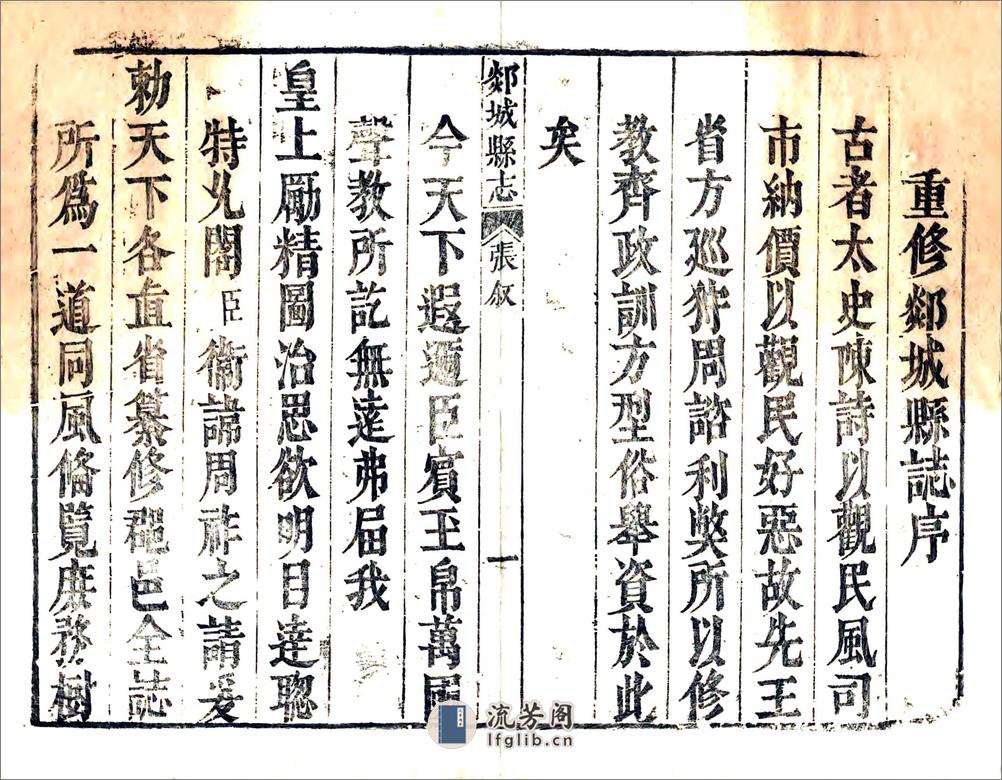 重修郯城縣誌序
古者太史陳詩以觀民風司
市納價以觀民好惡故先王
省方巡狩周諮利弊所以修
教齊政訓方型俗舉資於此
矣
郯城縣志 張叙 一
今天下遐邇臣賓玉帛萬國
聲教所訖無遠弗屆我
皇上勵精圖治思欲明目達聰
特允閣臣衞 周祚之請爰
勅天下各直省纂修郡邑全誌
所爲一道同風俻覽庶務樹
流芳阁
lfglib.cn